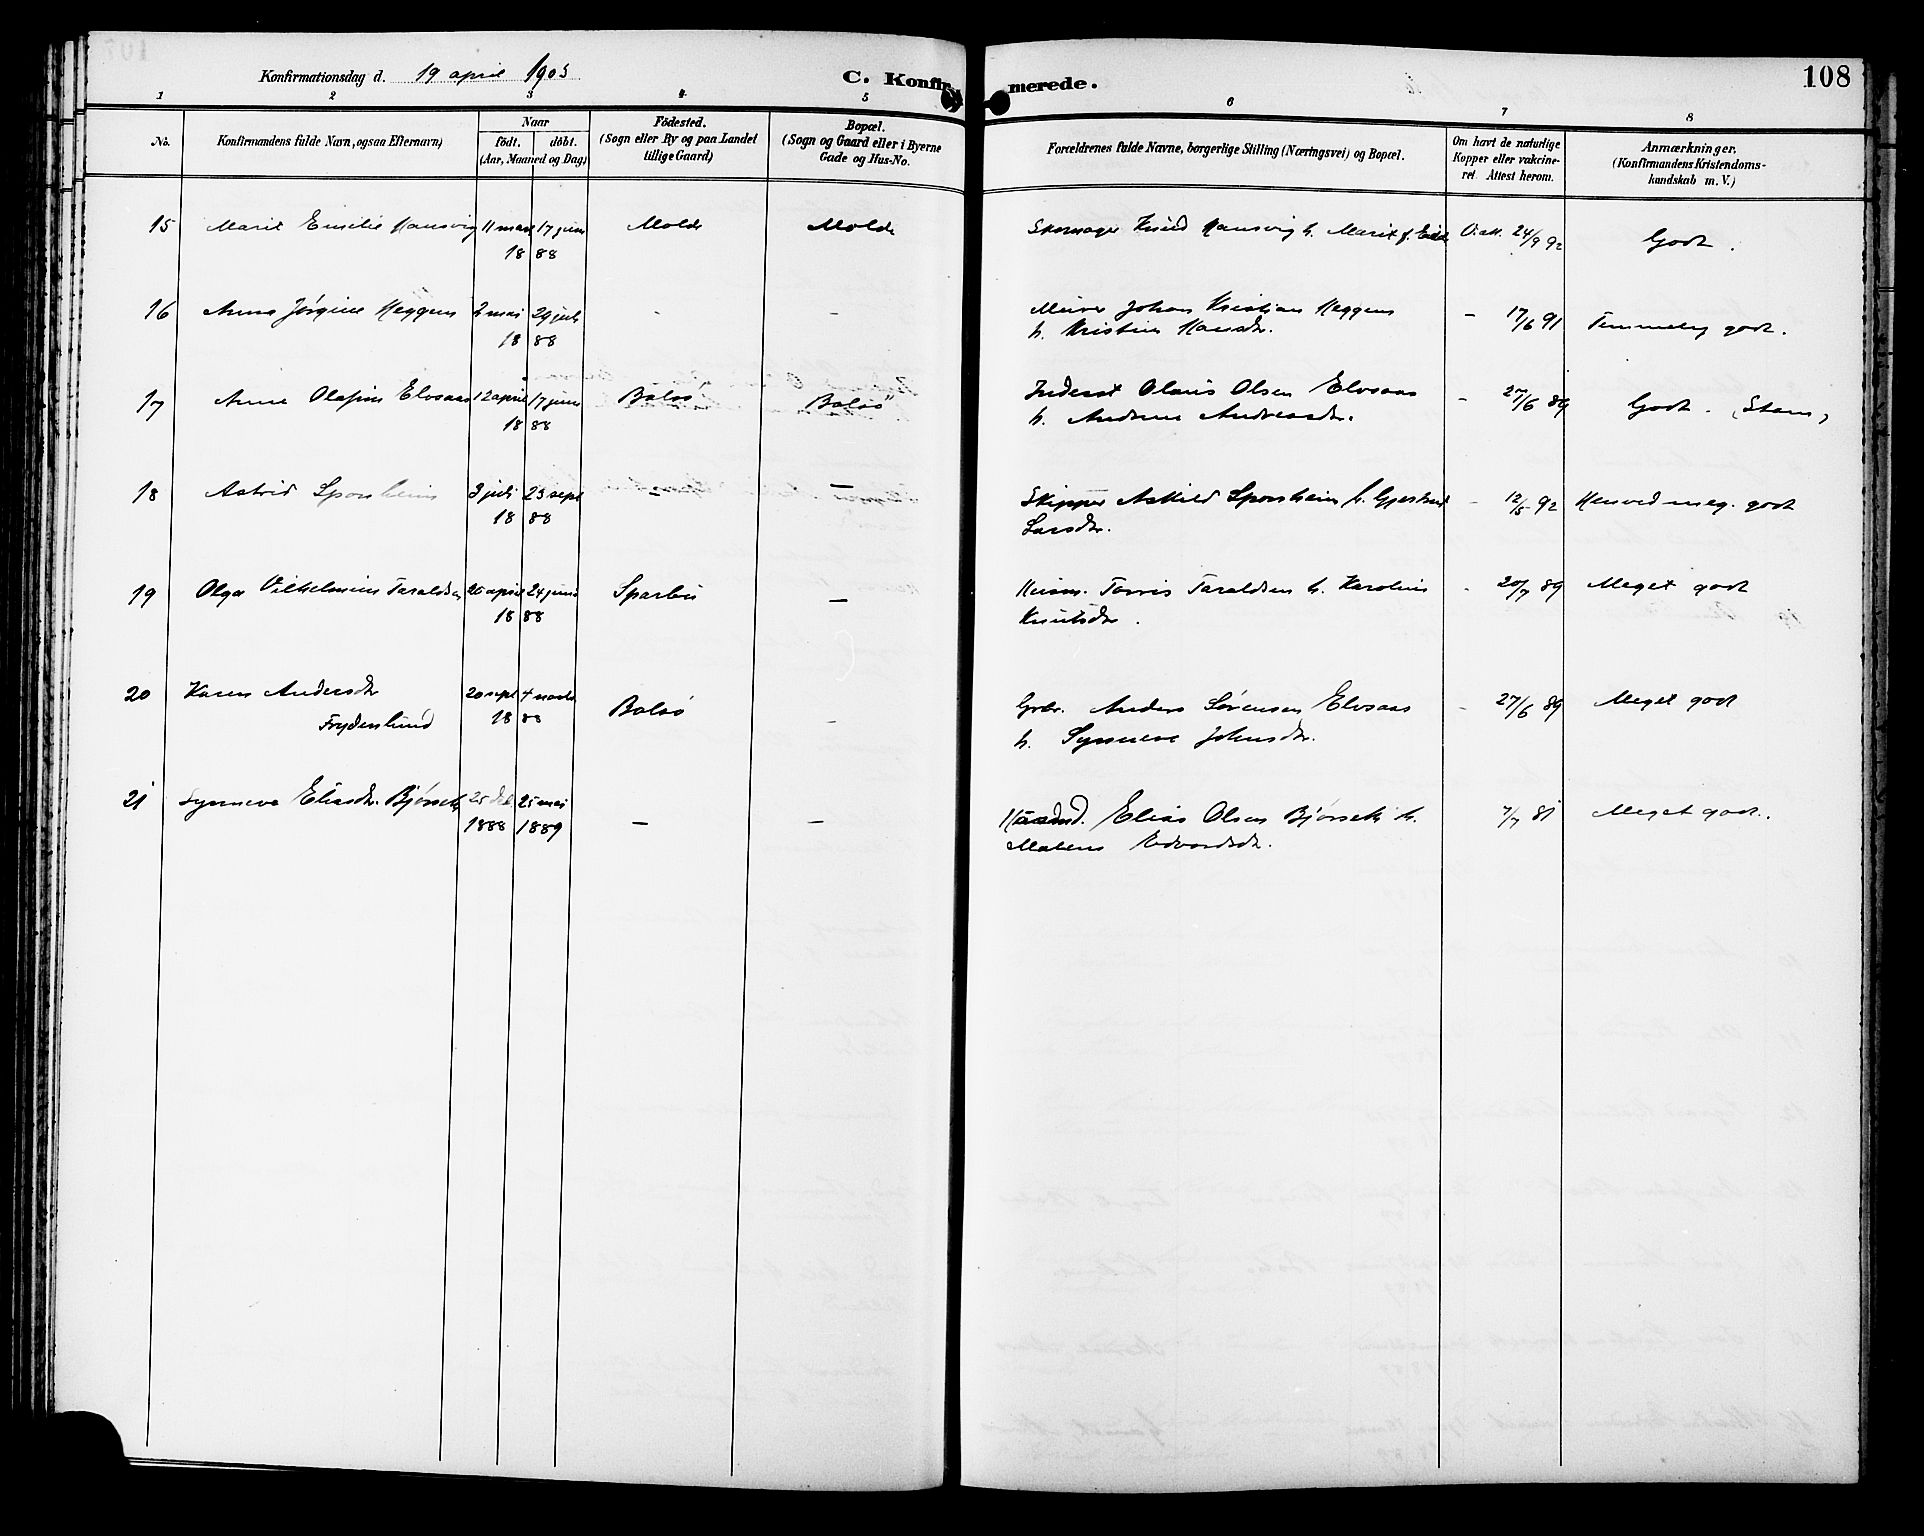 108
Konfirmationsdag d. 19 april 1903
C. Konfir merede.
1 2 3 4 5 6 7 8
No. Konfirmandens fulde Navn, ogsaa Efternavn) Naar födt. döbt. (Aar, Maaned og Dag) Födested. (Sogn eller By og paa Landet tillige Gaard) Bopæl. (Sogn og Gaard eller i Byerne Gade og Hus-No. Forældrenes fulde Navne, borgerlige Stilling (Næringsvei) og Bopæl. Om havt de naturlige Kopper eller vakcineret. Attest herom. Anmærkninger. (Konfirmandens Kristendomskundskab m. V.)
15 Marit Emilie Hansvig 11 mars 17 juni Molde Molde Skomager Knud Hansvig h. Marit f. Eide 24/9 92 Godt.
18 88
16 Anna Jørgine Heggem 2 mai 29 juli - - Murer Johan Kristian Heggem - 17/6 91 Temmelig godt.
18 88 h. Kristine Hansdr.
17 Anne Olafine Elvsaas 12 april 17 juni Bolsø Bolsø Inderst Olaus Olsen Elvsaas - 27/6 89 Godt. (Stam)
18 88 h. Andrine Andreasdr.
18 Astrid Sponheim 3 juli 23 sept - - Skipper Askild Sponheim h. Gjertrud - 12/5 92 Henved meg. godt
18 88 Larsdr.
19 Olga Vilhelmine Taraldsen 20 april 24 juni Sparbu - Husm. Torris Taraldsen h. Karoline - 20/7 89 Meget godt
18 88 Knutsdr.
20 Karen Andersdr. 20 sept 4 novbr Bolsø - Gbr. Anders Sørensen Elvsaas - 27/6 89 Meget godt
Frydenlund 18 88 h. Synneve Johnsdr.
21 Synneva Eliasdr. Bjørset 25 deb. 25 mai - - Elias Olsen Bjørset h. 7/7 81 Meget godt.
1888 1889 Malene Edvardsdr.